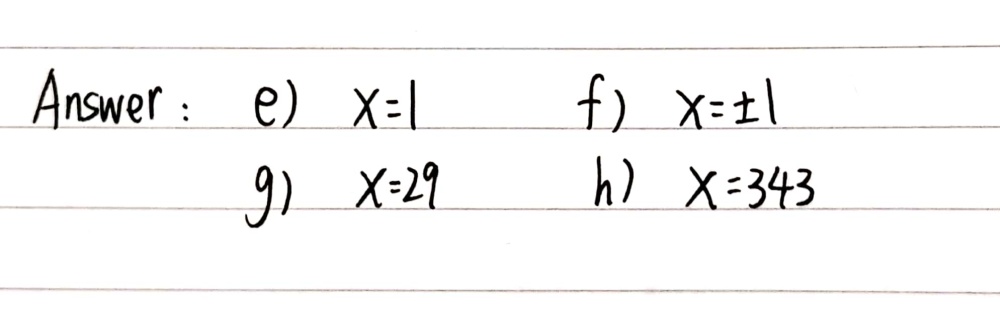 Answer : e) x=1 f) x=±1
g) x=29 h) x=343